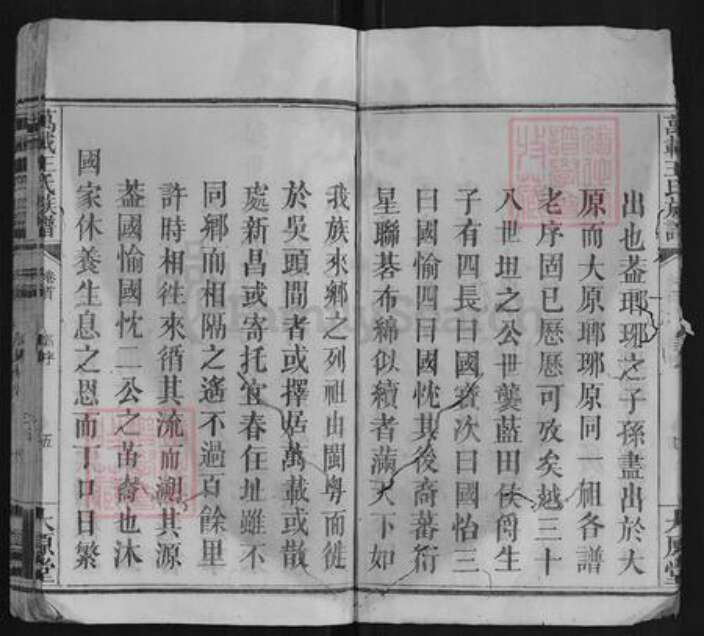 出也葢瑯琊之子孫盡出於大
原而大原瑯琊原同一祖各譜
老序固已歷歷可攷矣越三十
八世坦之公世襲藍田侯爵生
子有四長曰國寶次曰國怡三
曰國愉四曰國忱其後裔蕃衍
星聯碁布綿似續者滿天下如
我族來鄉之列祖由閩粵而徙
於吳頭間者或擇居萬載或散
處新昌或寄托宜春住址雖不
同鄉而相隔之遙不過百餘里
許時相徃來循其流而溯其源
葢國愉國忱二公之苗裔也沐
國家休養生息之恩而丁口日繁
萬載王氏族譜
卷首
五
大原堂
萬載王氏族譜
大原堂